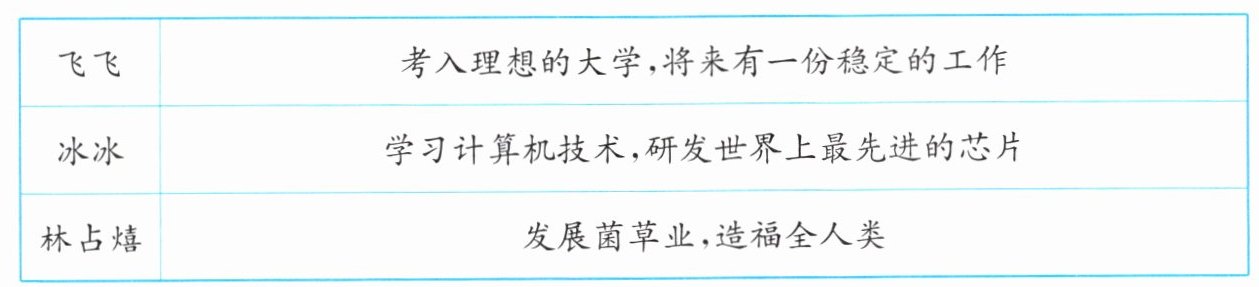 飞飞 考入理想的大学,将来有一份稳定的工作
冰冰 学习计算机技术,研发世界上最先进的芯片
林占熺 发展菌草业,造福全人类